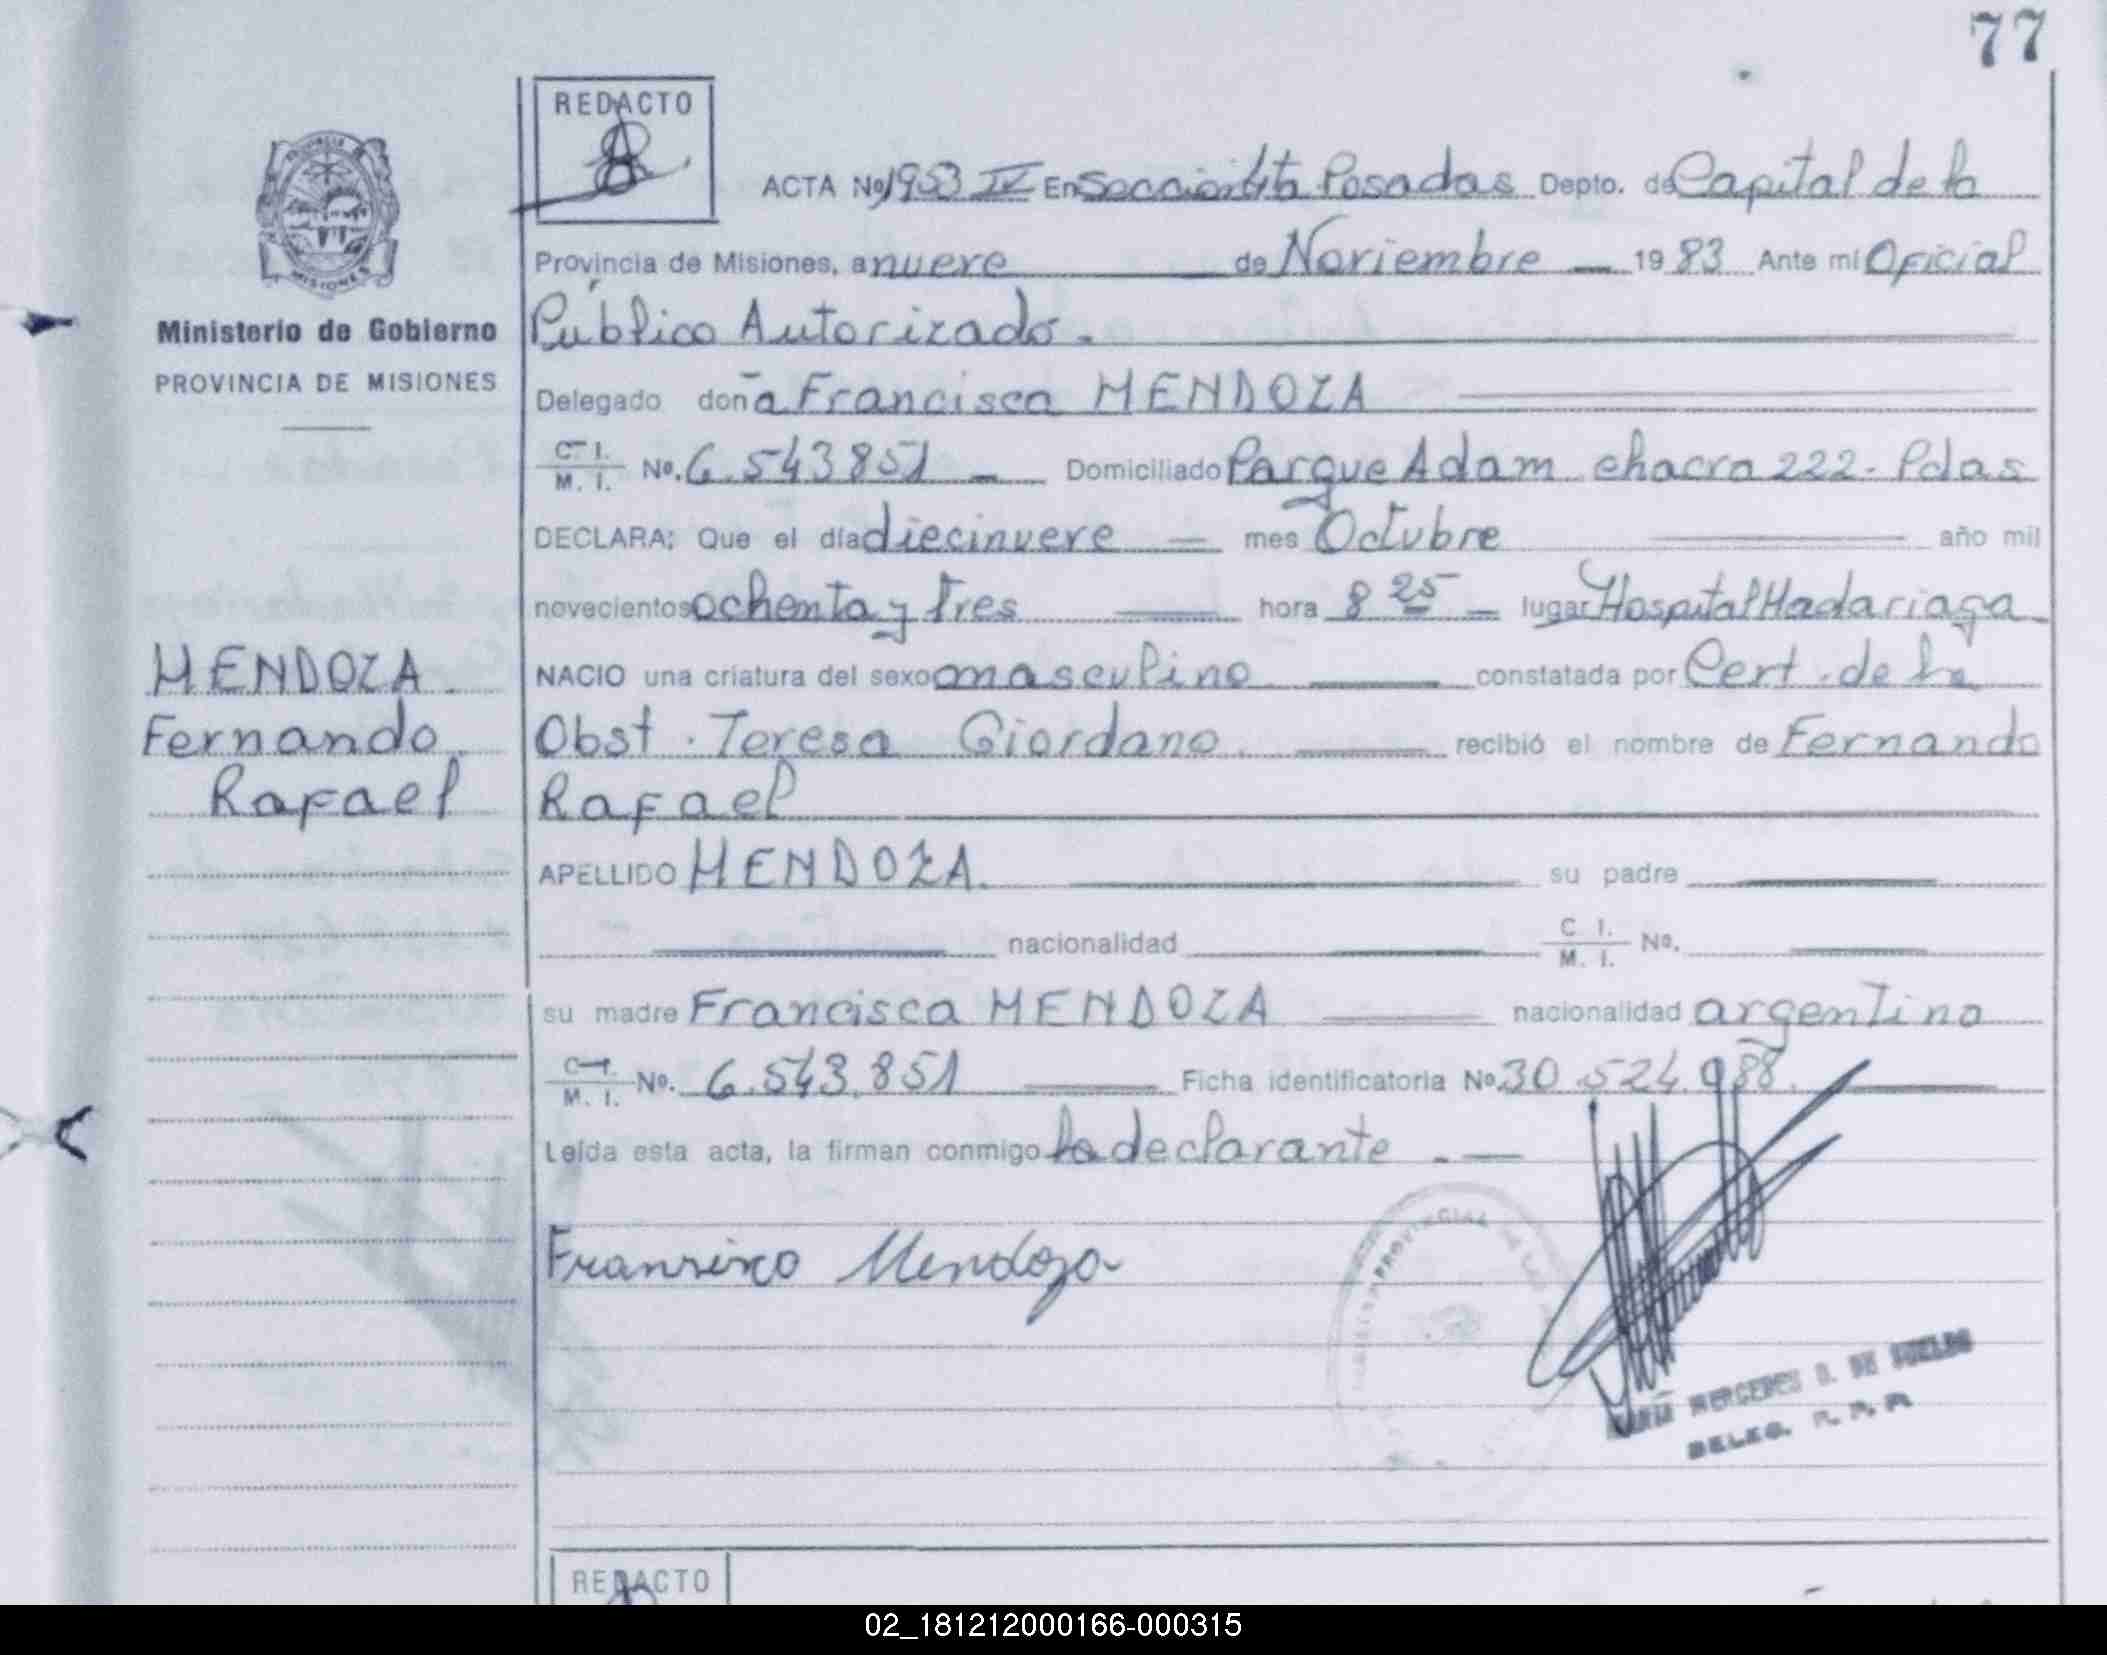 77
REDACTO
ACTA No 1953 IV En Sección 4ta Posadas Depto. de Capital de la
Provincia de Misiones, a nueve de Noviembre 19 83 Ante mi Oficial
Público Autorizado.
Ministerio de Gobierno
PROVINCIA DE MISIONES
Delegado doña Francisca MENDOZA
C. I. M. I. No. 6.543851 Domiciliado Parque Adam chacra 222 - Pdas
DECLARA: Que el día diecinueve mes Octubre año mil
novecientos ochenta y tres hora 8 25 lugar Hospital Madariaga
NACIO una criatura del sexo masculino constatada por Cert. de la
Obst. Teresa Giordano recibió el nombre de Fernando
Rafael
MENDOZA
Fernando
Rafael
APELLIDO MENDOZA su padre
nacionalidad C. I. M. I. No.
su madre Francisca MENDOZA nacionalidad argentina
C. I. M. I. No. 6.543.851 Ficha identificatoria No 30.524.988.
Leída esta acta, la firman conmigo la declarante
Fransisca Mendoza
PROVINCIAL DE LAS
MERCEDES DE
DELEG.
REDACTO
02_181212000166-000315